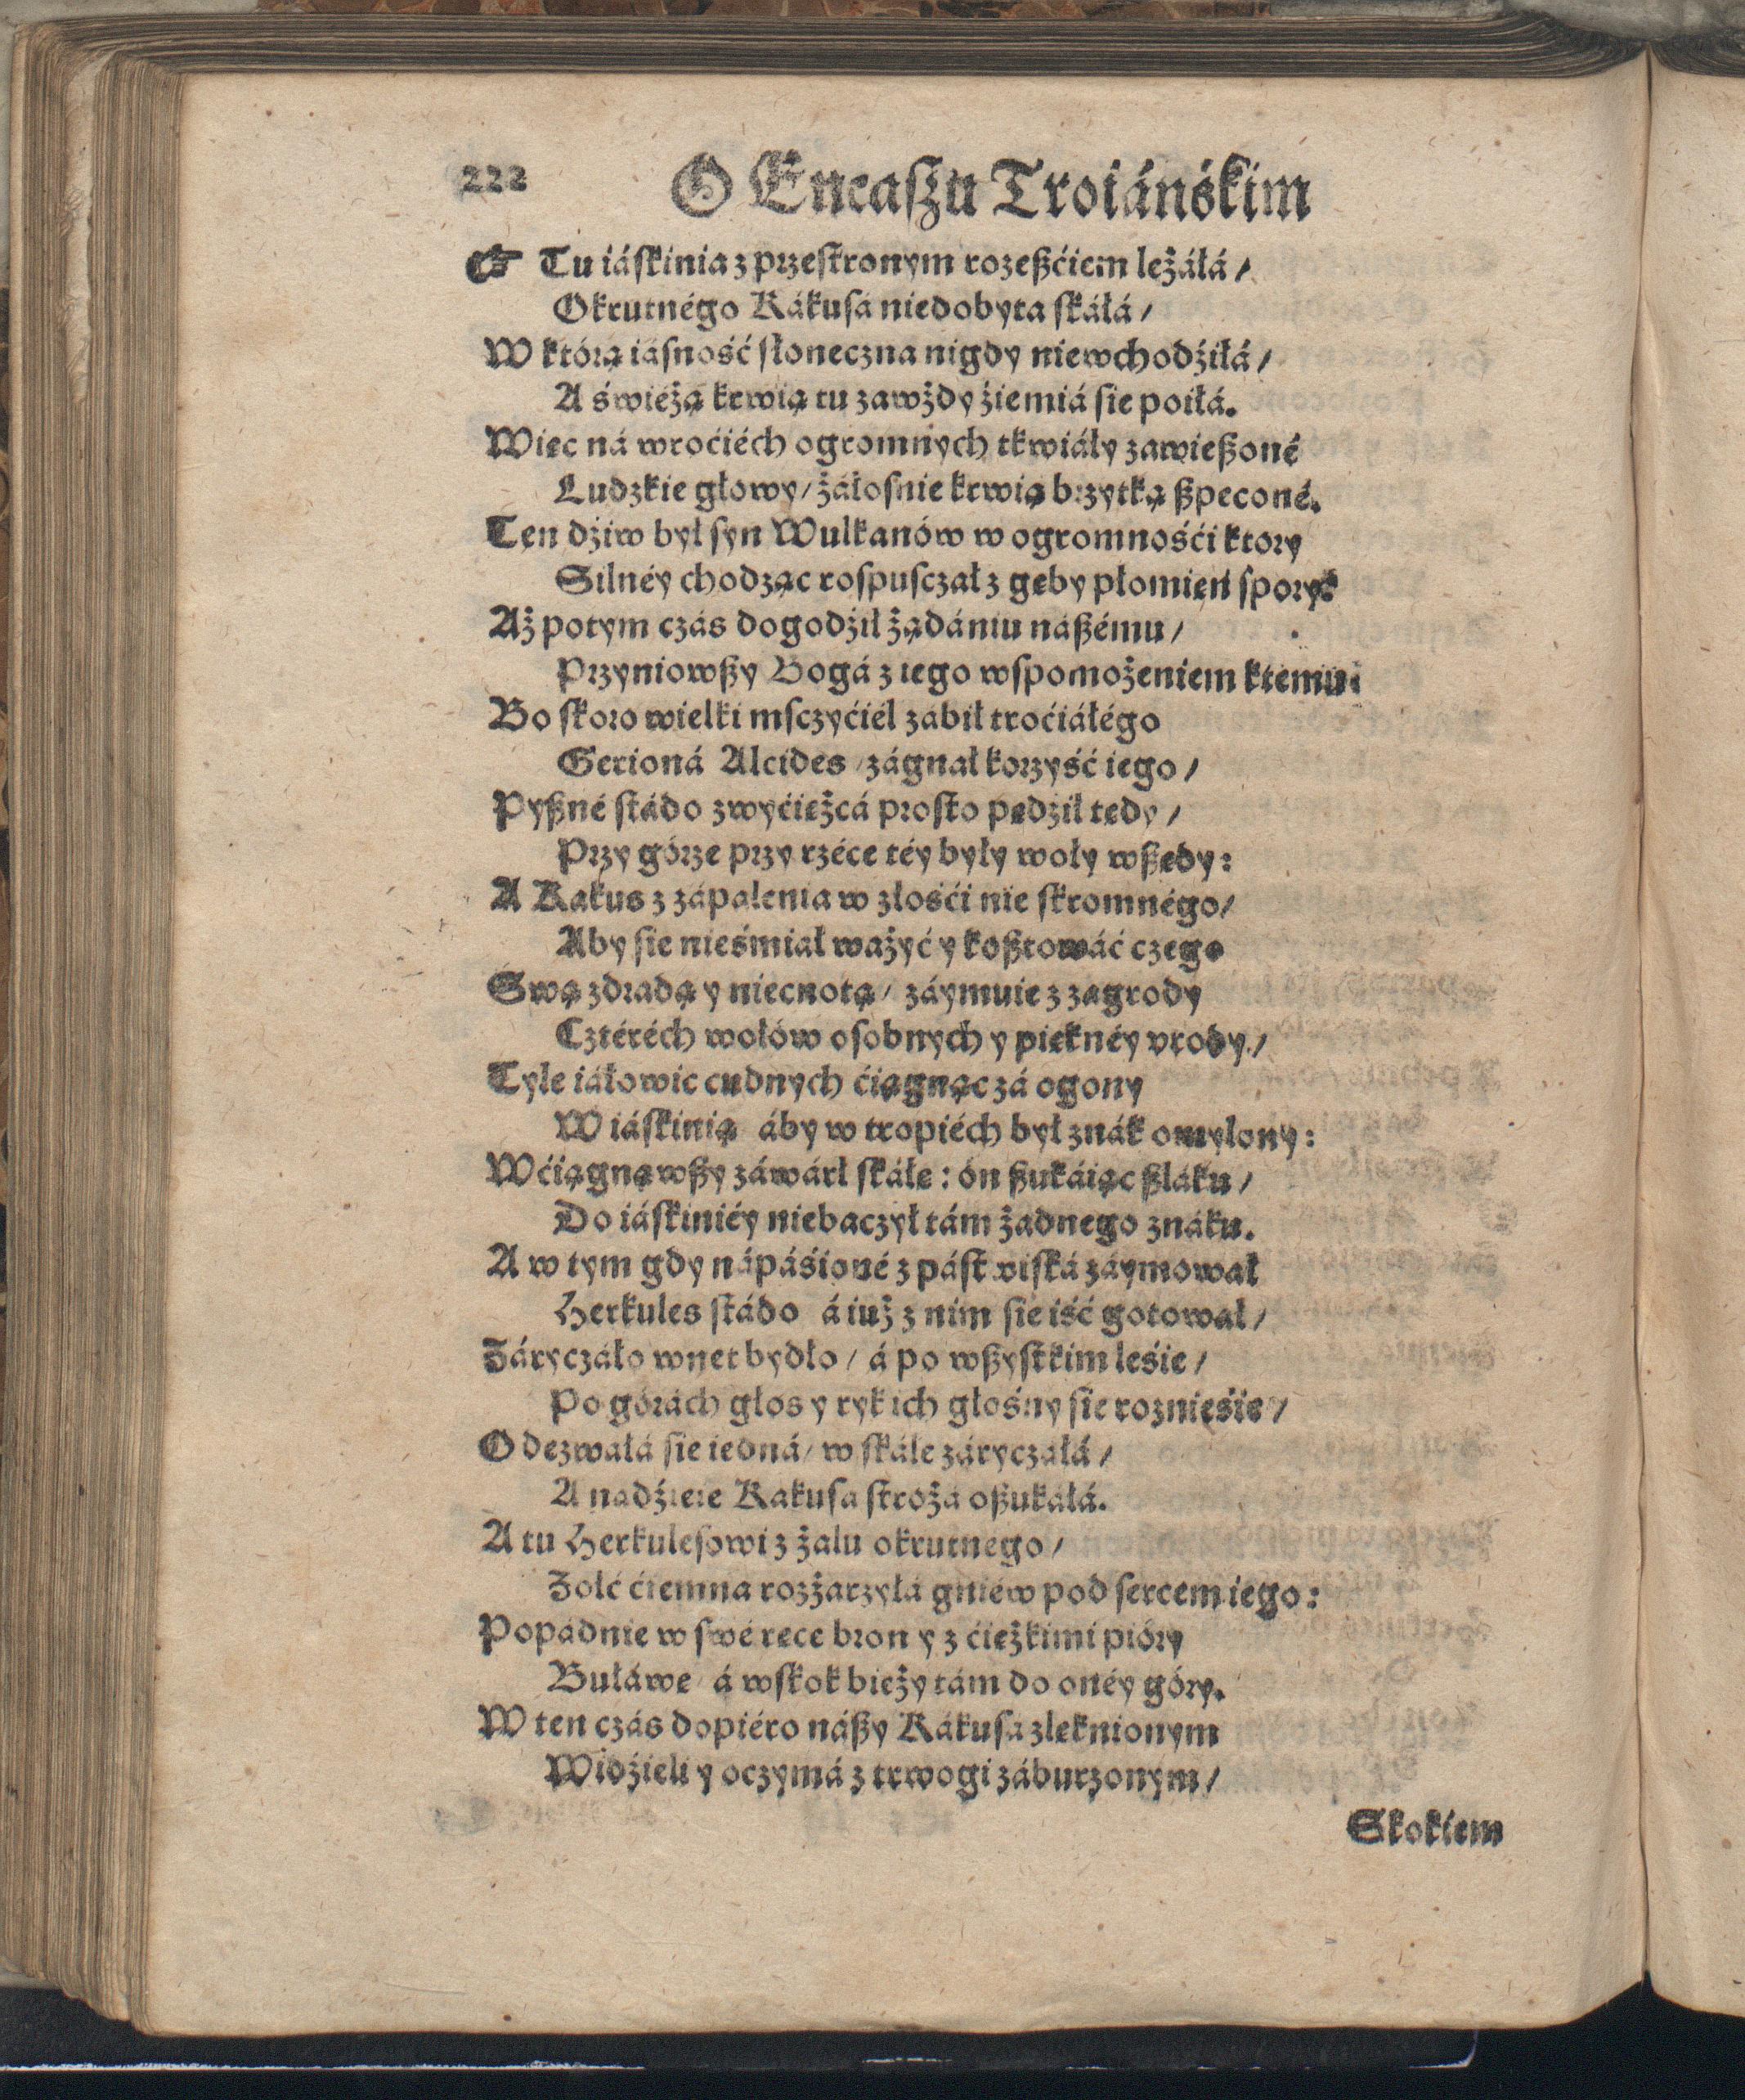 222 O Eneaszu Troiánśkim
☞ Tu iáskinia z przestronym rozeßćiem leżáłá /
Okrutnégo Kákusá niedobyta skáłá /
W którą iásność słoneczna nigdy niewchodźiłá /
A świéżą krwią tu zawżdy źiemiá sie poiłá.
Wiec ná wroćiéch ogromnych tkwiáły zawießoné
Ludzkie głowy / żáłosnie krwią brzytką ßpeconé.
Ten dźiw był syn Wulkanów w ogromnośći ktory
Silnéy chodząc rospusczał z geby płomień spory.
Aż potym czás dogodźił żądániu náßému /
Przyniowßy Bogá z iego wspomożeniem ktemu:
Bo skoro wielki msczyćiél zábił troćiáłégo
Gerioná Alcides / zágnał korzyść iego /
Pyßné stádo zwyćieżcá prosto pędźił tędy /
Przy górze przy rzéce téy były woły wßędy:
A Kakus z zápalenia w złośći nie skromnégo /
Aby sie nieśmiał ważyć y koßtowáć czego
Swą zdradą y niecnotą / záymuie z zagrody
Cztéréch wołów osobnych y pięknéy vrody /
Tyle iáłowic cudnych ćiągnąc zá ogony
W iáskinią áby w tropiéch był znák omylony:
Wćiągnąwßy záwárł skáłe: ón ßukáiąc ßláku /
Do iáskiniéy niebaczył tám żadnego znáku.
A w tym gdy nápáśioné z pástwiská záymował
Herkules stádo á iuż z nim sie iść gotował /
Záryczáło wnet bydło / á po wßystkim leśie /
Po górách głos y ryk ich głośny sie roznieśie /
Odezwałá sie iedná / w skále záryczáłá /
A nadźieie Kakusa stróżá oßukáłá.
A tu Herkulesowi z żalu okrutnego /
Zółć ćiemna rozżarzyłá gniéw pod sercem iego:
Popádnie w swé rece bron y z ćieżkimi pióry
Bułáwe / á wskok bieży tám do onéy góry.
W ten czás dopiéro náßy Kákusa zlęknionym
Widźieli y oczymá z trwogi záburzonym /
Skokiem